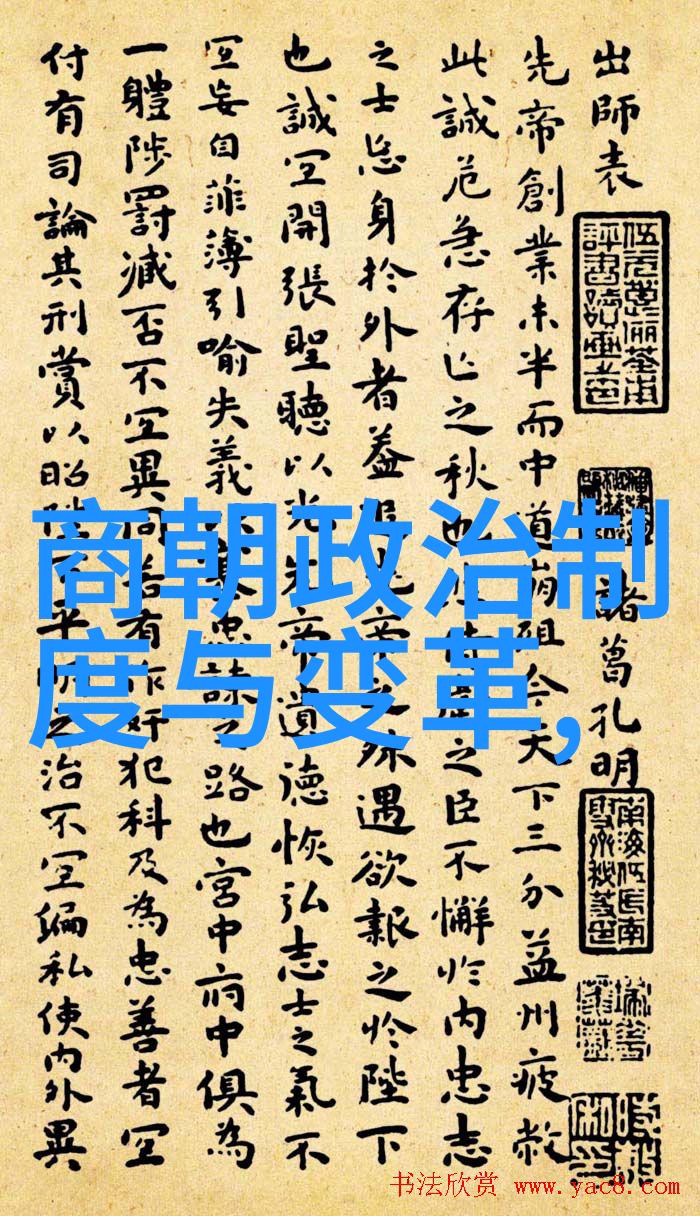 出師表
諸葛孔明
先帝創業未半而中道崩殂今天下三分益州疲敝
此誠危急存亡之秋也然侍衛之臣不懈於內忠志
之士忘身於外者蓋追先帝之殊遇欲報之於陛下
也誠宜開張聖聽以光先帝遺德恢弘志士之氣不
宜妄自菲薄引喻失義以塞忠諫之路也宮中府中俱為
一體陟罰臧否不宜異同若有作奸犯科及為忠善者宜
付有司論其刑賞以昭陛下平明之治不宜偏私使內外異
商朝政治制
度与变革,
书法欣赏 www.yac8.com